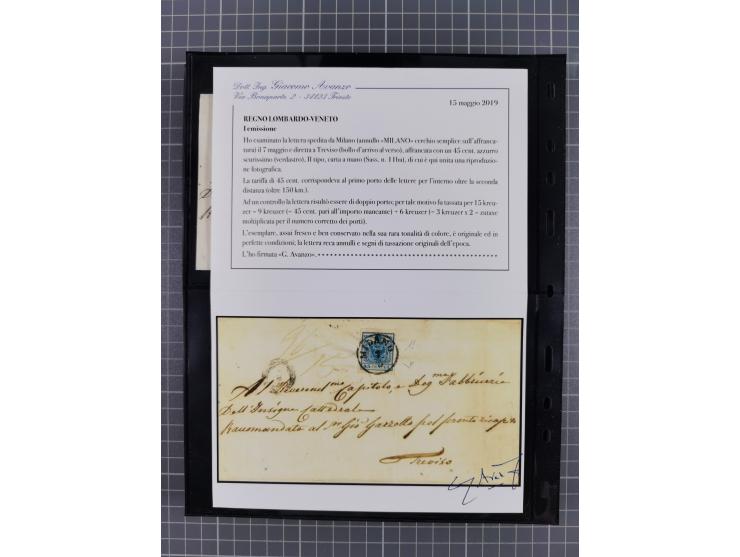 Dott. Ing. Giacomo Avanzo
Via Bonaparte 2 - 34123 Trieste
15 maggio 2019
REGNO LOMBARDO-VENETO
I emissione
Ho esaminato la lettera spedita da Milano (annullo «MILANO» cerchio semplice sull'affranca-
tura) il 7 maggio e diretta a Treviso (bollo d'arrivo al verso), affrancata con un 45 cent. azzurro
scurissimo (verdastro), II tipo, carta a mano (Sass. n. 11ba), di cui è qui unita una riproduzio-
ne fotografica.
La tariffa di 45 cent. corrispondeva al primo porto delle lettere per l'interno oltre la seconda
distanza (oltre 150 km.).
Ad un controllo la lettera risultò essere di doppio porto; per tale motivo fu tassata per 15 kreu-
zer = 9 kreuzer (= 45 cent. pari all'importo mancante) + 6 kreuzer (= 3 kreuzer x 2 =
moltiplicata per il numero corretto dei porti).
L'esemplare, assai fresco e ben conservato nella sua rara tonalità di colore, è originale ed in
perfette condizioni; la lettera reca annulli e segni di tassazione originali dell'epoca.
L'ho firmata «G. Avanzo».
MILANO
Capitolo, e
Dell'Insigne Cattedrale
Raccomandata al
Treviso